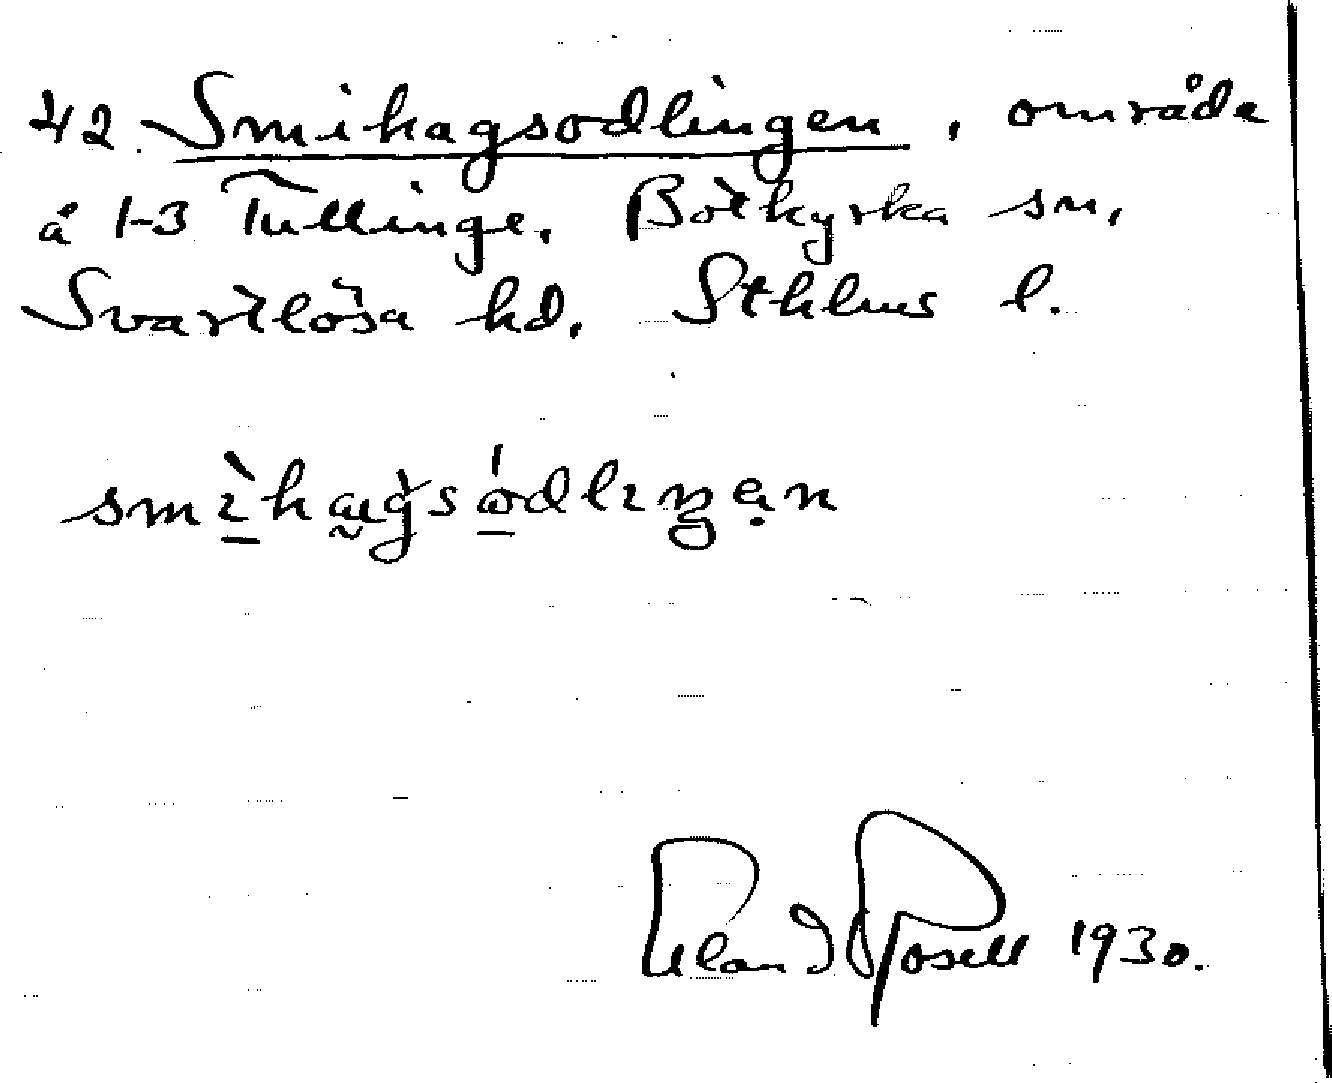 42. Smihagsodlingen, område
å 1-3 Tullinge. Botkyrka sn,
Svartlösa hd. Sthlms l.
smìhag̀sódlıŋən
Erland Rosell 1930.